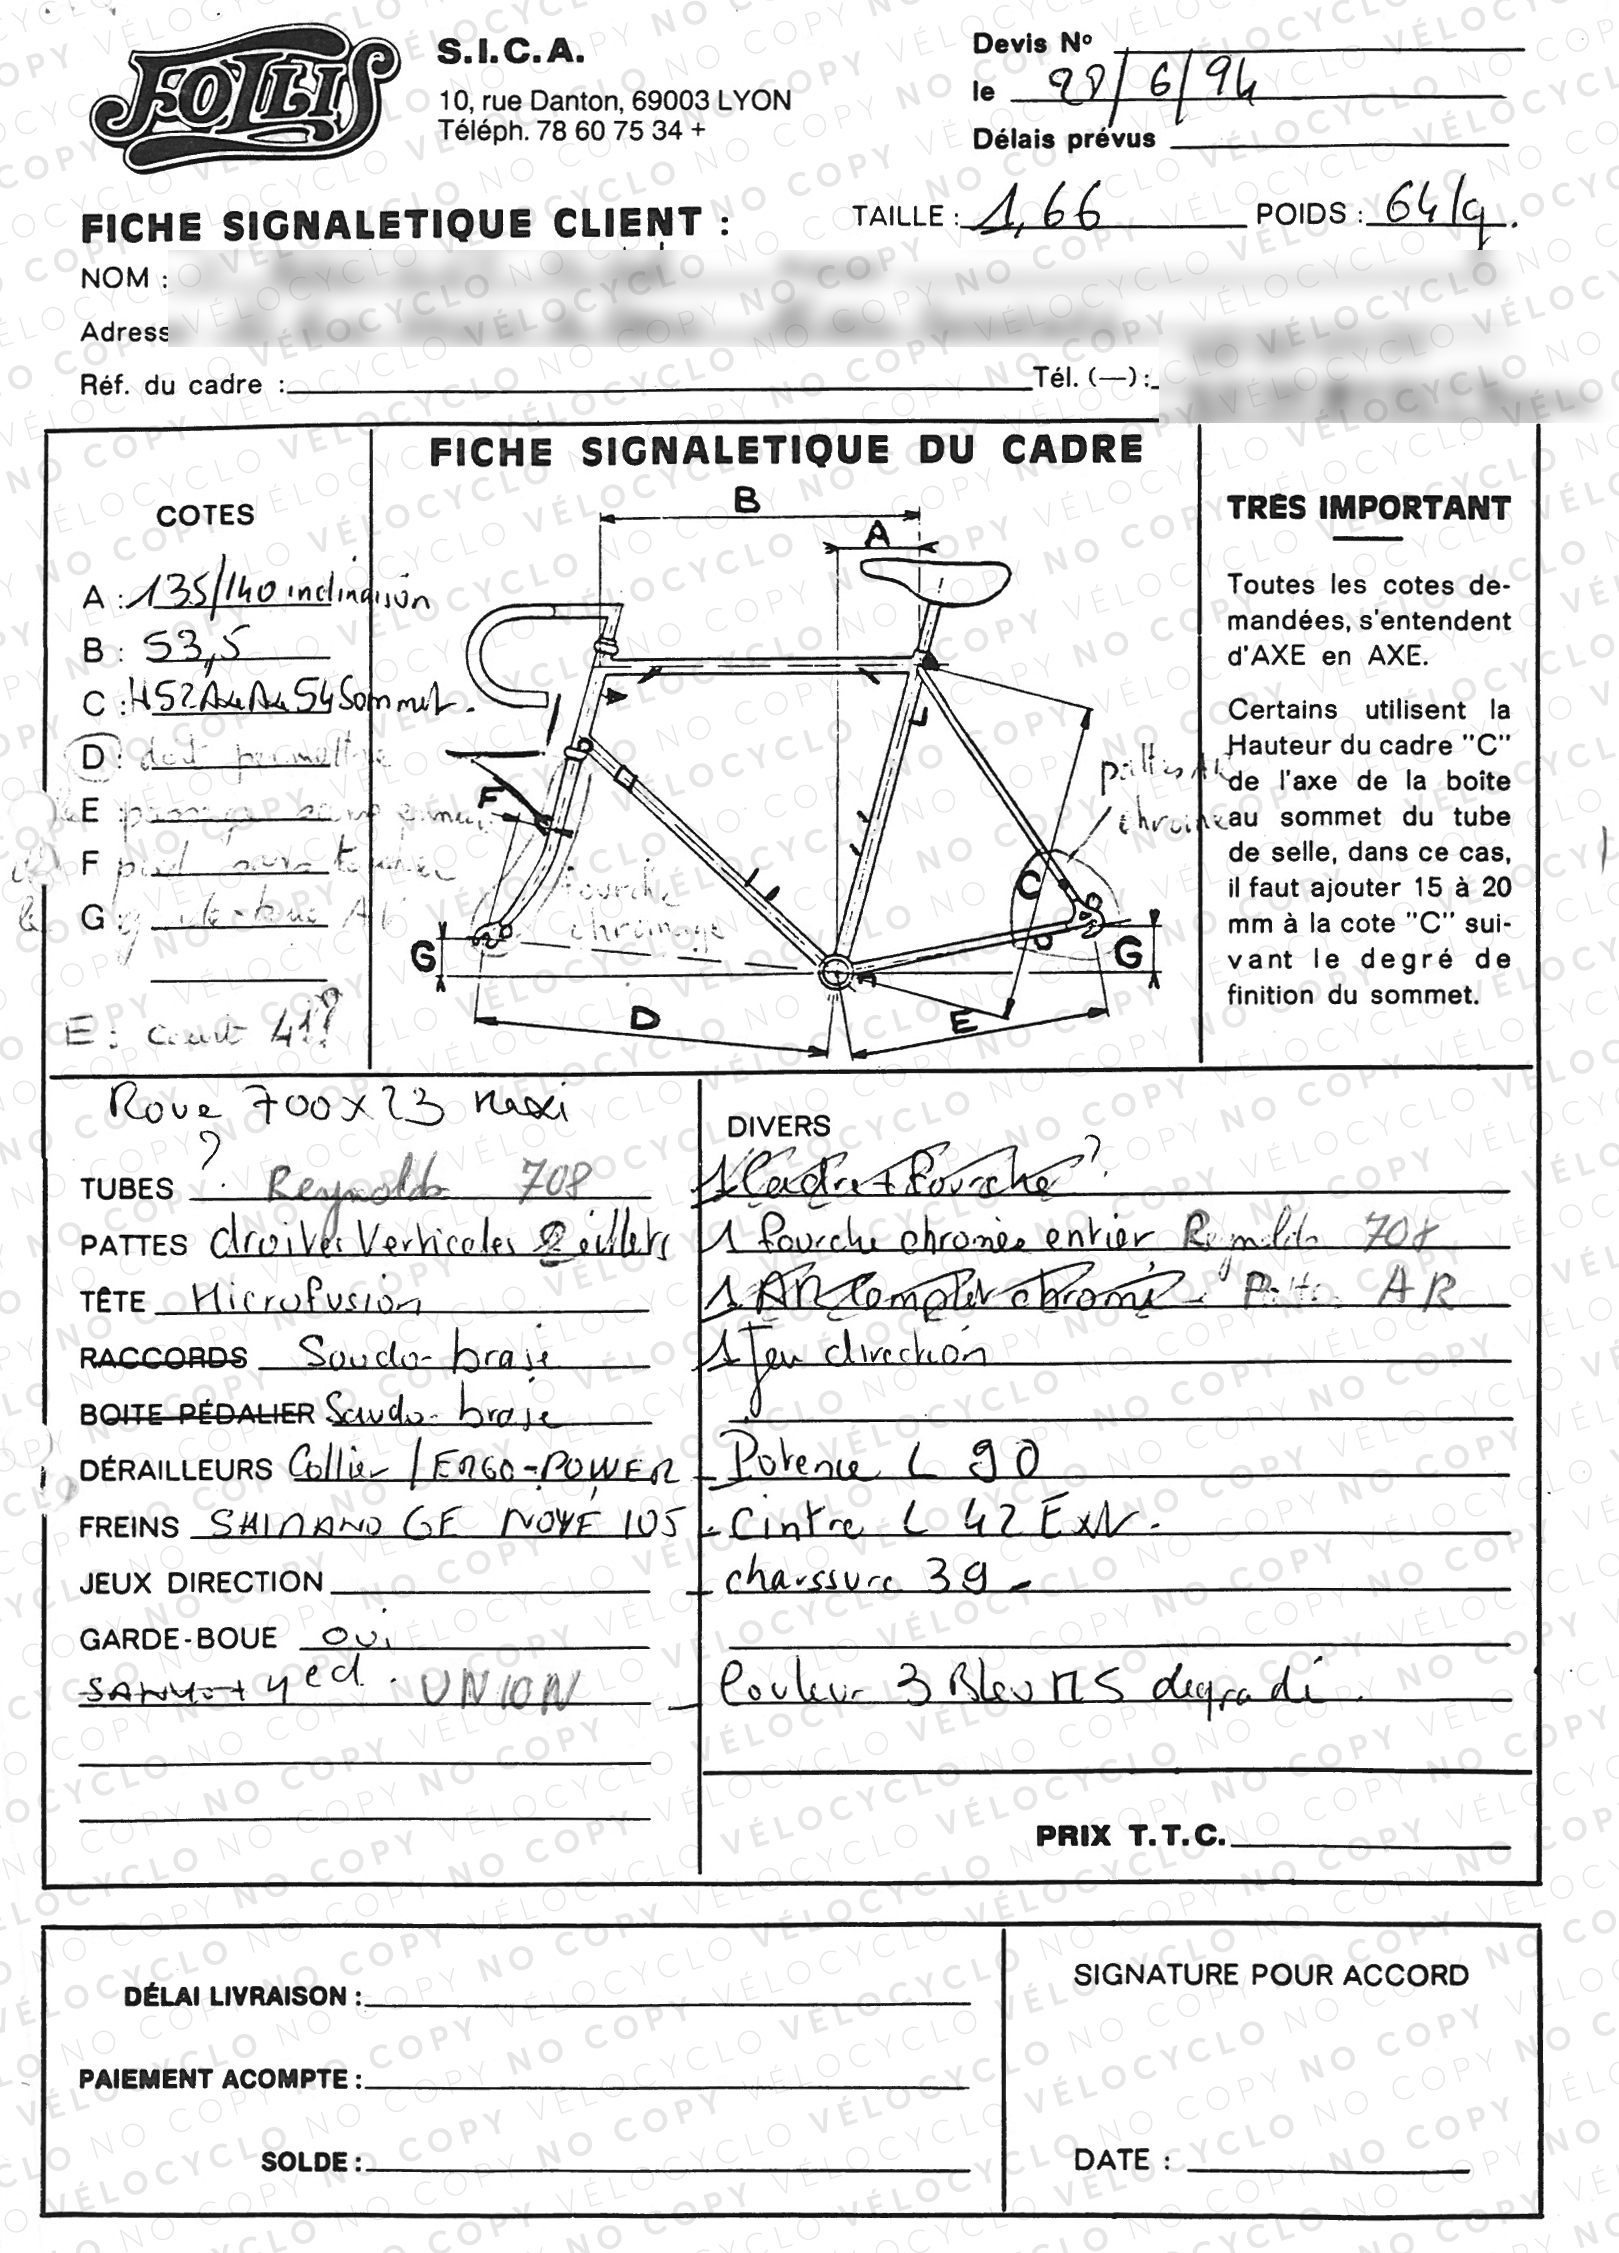 FOLLIS
S.I.C.A.
10, rue Danton, 69003 LYON
Téléph. 78 60 75 34 +
Devis Nº
le 28/6/94
Délais prévus
FICHE SIGNALETIQUE CLIENT :
TAILLE : 1,66 POIDS : 64 kg.
NOM :
Adress
Réf. du cadre : Tél. (—) :
FICHE SIGNALETIQUE DU CADRE
COTES
A : 135/140 inclinaison
B : 53,5
C : H 52 Axe Axe 54 Sommet.
D : doit permettre
E passage sans
F pied sans toucher
G
E : court 41?
B
A
F
C
G
G
D
E
fourche
chromage
pattes AR
chromé
TRES IMPORTANT
Toutes les cotes de-
mandées, s'entendent
d'AXE en AXE.
Certains utilisent la
Hauteur du cadre "C"
de l'axe de la boîte
au sommet du tube
de selle, dans ce cas,
il faut ajouter 15 à 20
mm à la cote "C" sui-
vant le degré de
finition du sommet.
Roue 700x23 Maxi
?
TUBES Reynolds 708
PATTES droites Verticales 2 œillets
TÊTE Microfusion
RACCORDS Soudo-brasé
BOITE PÉDALIER Soudo-brasé
DÉRAILLEURS Collier / ERGO-POWER
FREINS SHIMANO GE NOYÉ 105
JEUX DIRECTION
GARDE-BOUE oui
UNION
DIVERS
1 Cadre + Fourche ?
1 fourche chromée entier Reynolds 708
1 AR Complet chromé - Pattes AR
1 Jeu direction
- Potence L 90
- Cintre L 42 Ext.
- chaussure 39 -
- Couleur 3 Bleu MS degradé.
PRIX T.T.C.
DÉLAI LIVRAISON :
PAIEMENT ACOMPTE :
SOLDE :
SIGNATURE POUR ACCORD
DATE :
VÉLOCYCLO NO COPY